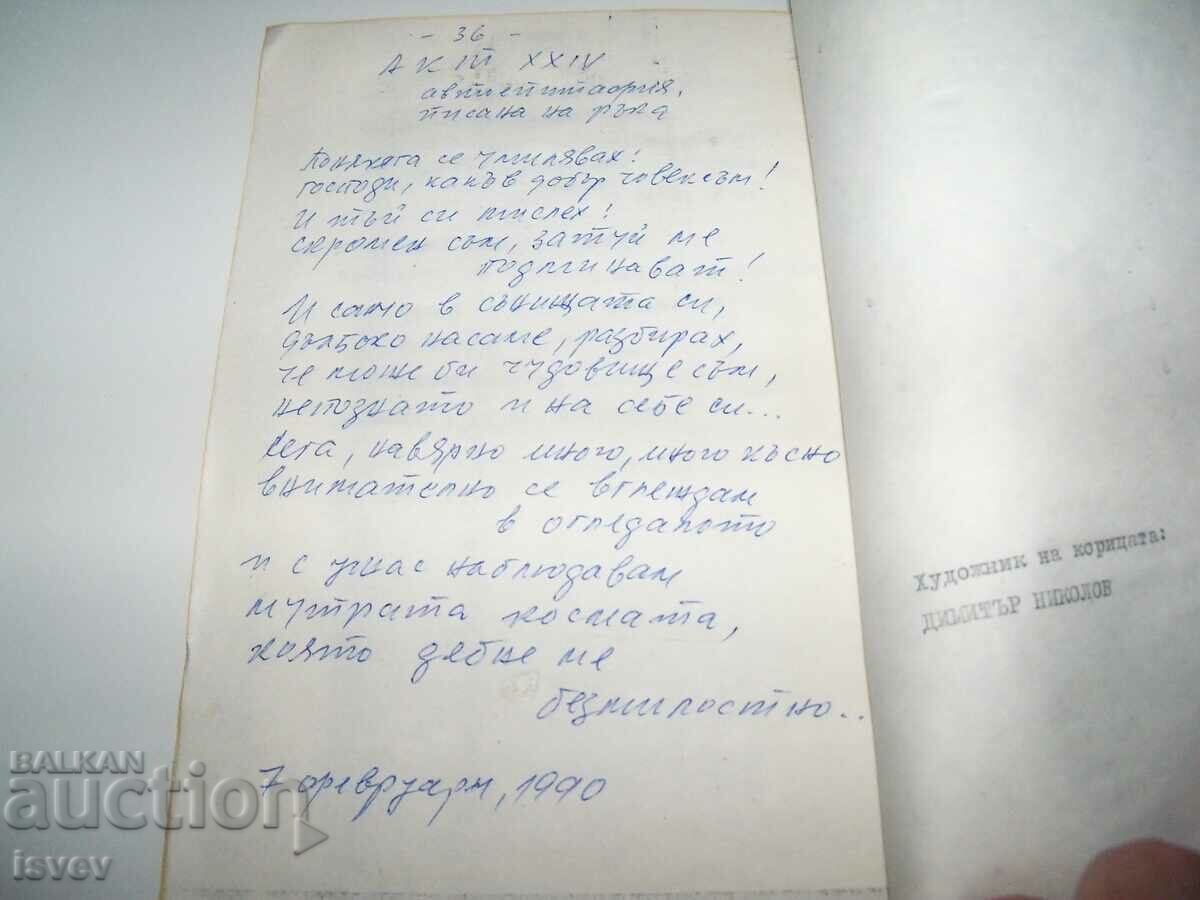 - 36 -
АКТ XXIV
автоепитафия,
писана на ръка
Понякога се умилявах:
господи, какъв добър човек съм!
И тъй си мислех:
скромен съм, затуй ме
подминават!
И само в сънищата си,
дълбоко насаме, разбирах,
че може би чудовище съм,
непознато и на себе си...
Сега, навярно много, много късно
внимателно се вглеждам
в огледалото
и с ужас наблюдавам
мутрата космата,
която дебне ме
безмилостно..
7 февруари, 1990
Художник на корицата:
ДИМИТЪР НИКОЛОВ
BALKAN
auction
isvev